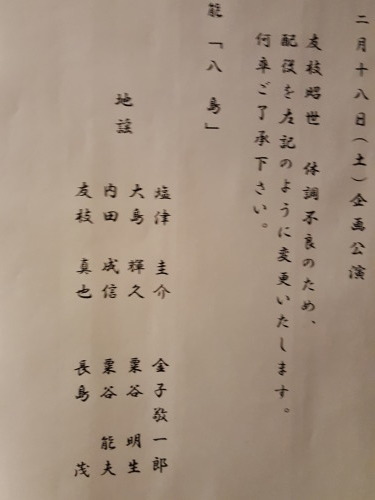 二月十八日(土)企画公演
友枝昭世 体調不良のため、
配役を左記のように変更いたします。
何卒ご了承下さい。
能「八島」
地謡
塩津 圭介 金子敬一郎
大島 輝久 粟谷 明生
内田 成信 粟谷 能夫
友枝 真也 長島 茂